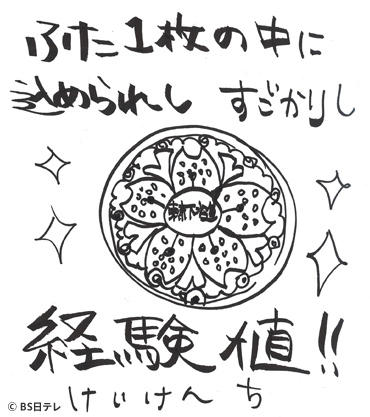 ふた1枚の中に
込められし すごかりし
経験値!!
けいけんち
© BS日テレ